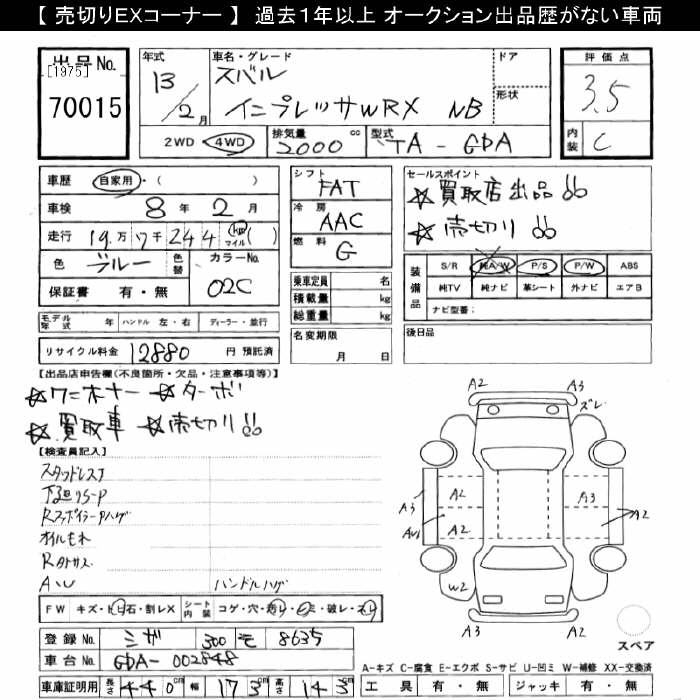 【 売切りEXコーナー 】 過去1年以上 オークション出品歴がない車両
出品No.
[1975]
70015
年式
13
2月
車名・グレード
スバル
インプレッサWRX NB
ドア
形状
評価点
3.5
内装
C
2WD 4WD
排気量
2000 cc
型式
TA - GDA
車歴 自家用・( )
車検 8年 2月
走行 19万7千244 km マイル ( )
色 ブルー 色替
カラーNo.
02C
保証書 有・無
シフト
FAT
冷房
AAC
燃料
G
乗車定員 名
積載量 kg
総重量 kg
名変期限
月 日
セールスポイント
☆買取店出品!!
☆売切り!!
装備品
S/R 純A/W P/S P/W ABS
純TV 純ナビ 革シート 外ナビ エアB
ナビ型番:
後日品
モデル年式 年 ハンドル 左・右 ディーラー・並行
リサイクル料金 12880 円 預託済
【出品店申告欄(不良箇所・欠品・注意事項等)】
☆ワンオーナー ☆ターボ
☆買取車 ☆売切り!!
【検査員記入】
スタッドレス
下廻りS-P
オイルモレ
A/W ハンドルハゲ
FW キズ・ト石・割レX
シート内装 コゲ・穴・汚レ・シミ・破レ・スレ
登録No. ミヤ 300 モ 8635
車台No. GDA- 002848
車庫証明用 長さ 440cm 幅 173cm 高さ 143cm
A2
A3
ズレ
A3
A2
A2
A3
A2
W2
A3
A2
スペア
A-キズ C-腐食 E-エクボ S-サビ U-凹ミ W-補修 XX-交換済
工具 有・無 ジャッキ 有・無